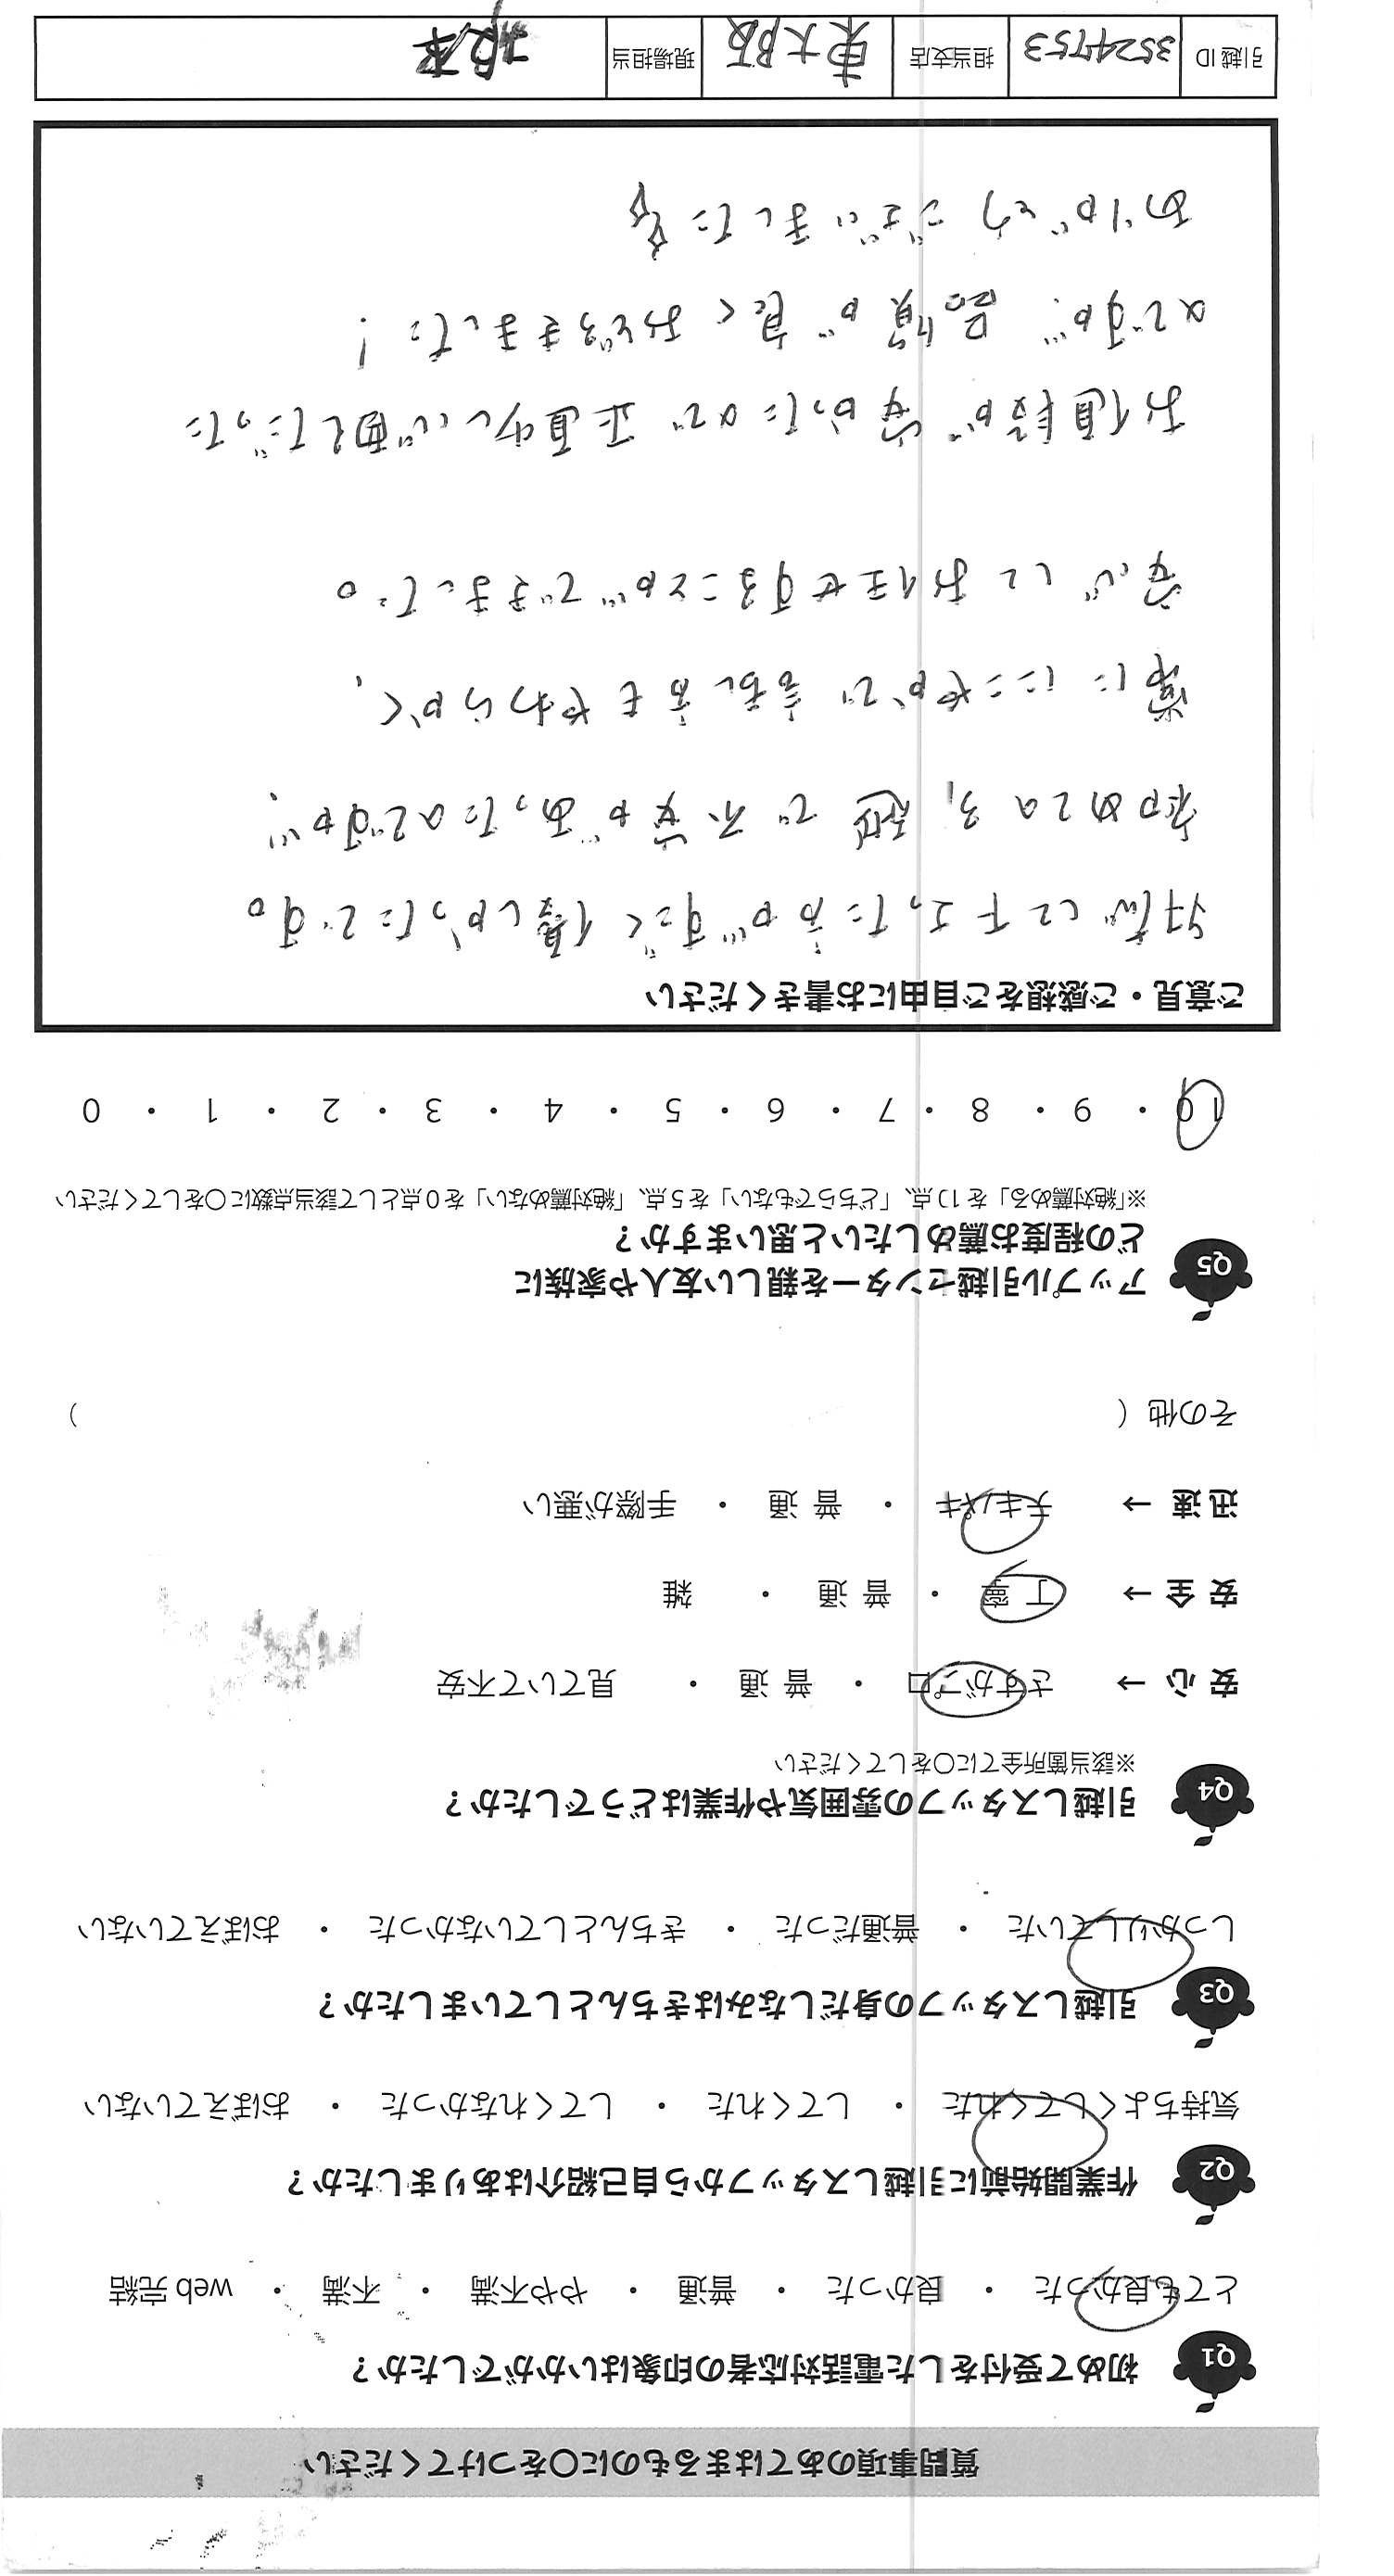 質問事項のあてはまるものに○をつけてください
Q1 初めて受付をした電話対応者の印象はいかがでしたか？
とても良かった ・ 良かった ・ 普通 ・ やや不満 ・ 不満 ・ web 完結
Q2 作業開始前に引越しスタッフから自己紹介はありましたか？
気持ちよくしてくれた ・ してくれた ・ してくれなかった ・ おぼえていない
Q3 引越しスタッフの身だしなみはきちんとしていましたか？
しっかりしていた ・ 普通だった ・ きちんとしていなかった ・ おぼえていない
Q4 引越しスタッフの雰囲気や作業はどうでしたか？
※該当箇所全てに○をしてください
安 心 → さすがプロ ・ 普 通 ・ 見ていて不安
安 全 → 丁 寧 ・ 普 通 ・ 雑
迅 速 → テキパキ ・ 普 通 ・ 手際が悪い
その他（ ）
Q5 アップル引越センターを親しい友人や家族に
どの程度お薦めしたいと思いますか？
※「絶対薦める」を10点、「どちらでもない」を５点、「絶対薦めない」を０点として該当点数に○をしてください
10 ・ 9 ・ 8 ・ 7 ・ 6 ・ 5 ・ 4 ・ 3 ・ 2 ・ 1 ・ 0
ご意見・ご感想をご自由にお書きください
対応して下さった方がすごく優しかったです。
初めての引越で不安があったのですが、
常ににこやかで言い方もやわらかく、
安心してお任せすることができました。
お値段が安かったので正直少し心配してだった
のですが、品質が良くおどろきました！
ありがとうございました
引越ID 3524753 担当支店 東大阪 現場担当